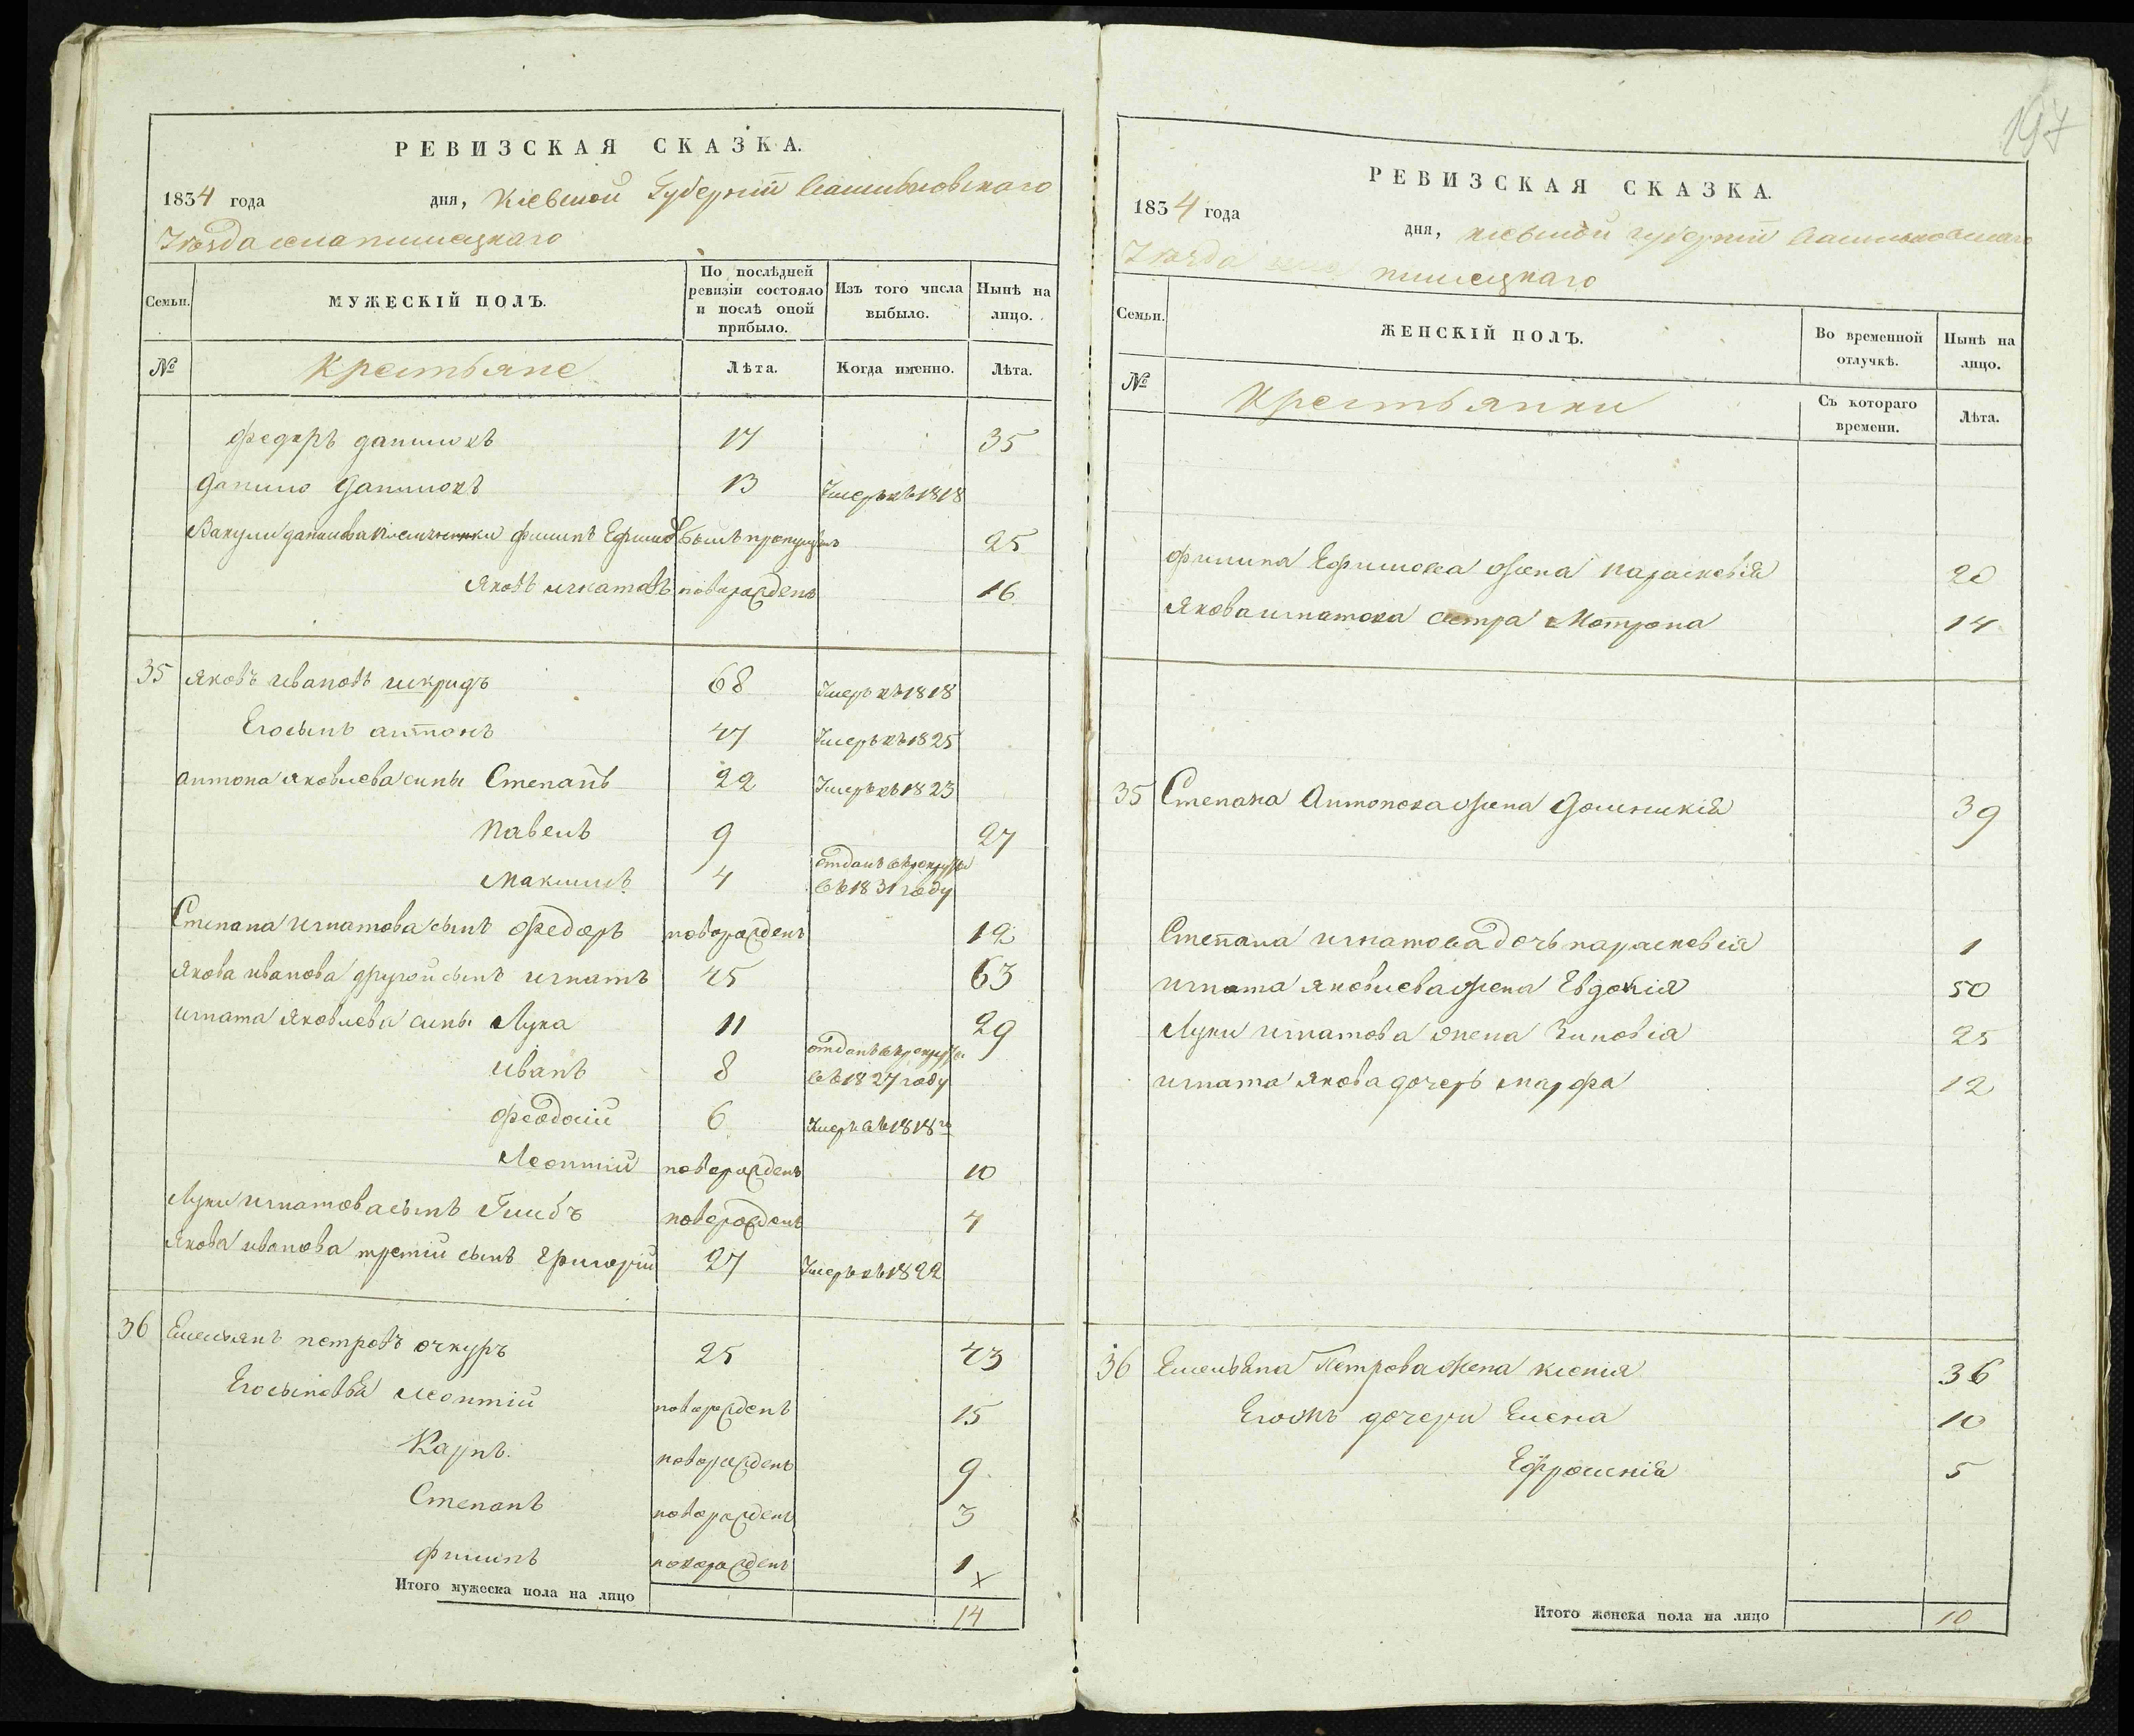 РЕВИЗСКАЯ СКАЗКА.
1834 года дня, Киевской Губернїи Васильковскаго
Уѣзда села
Семьи.
МУЖЕСКІЙ ПОЛЪ.
По послѣдней ревизіи состояло и послѣ оной прибыло.
Изъ того числа выбыло.
Нынѣ на лицо.
№
Крестьяне
Лѣта.
Когда именно.
Лѣта.
Федоръ Даниловъ 17 35
Данило Даниловъ 13 Умеръ въ 1818
Вакулы Данилова Филипъ Ефимовъ былъ пропущенъ 25
Яковъ Игнатовъ новорожденъ 16
35 Яковъ Ивановъ 68 Умеръ въ 1818
Его сынъ Антонъ 47 Умеръ въ 1825
Антона Яковлева сины Степанъ 22 Умеръ въ 1823
Павелъ 9 27
Максимъ 4 отданъ в рекруты въ 1831 году
Степана Игнатова сынъ Федоръ новорожденъ 12
Якова Иванова другой сынъ Игнатъ 45 63
Игната Яковлева сины Лука 11 29
Иванъ 8 отданъ в рекруты въ 1827 году
Феодосій 6 Умеръ въ 1818го
Леонтій новорожденъ 10
Луки Игнатова сынъ Глибъ новорожденъ 4
Якова Иванова третій сынъ Григорій 27 Умеръ въ 1822
36 Емельянъ Петровъ Очкуръ 25 43
Его сыновья Леонтій новорожденъ 15
Карпъ. новорожденъ 9
Степанъ новорожденъ 3
Филипъ новорожденъ 1
х
Итого мужеска пола на лицо 14
197
РЕВИЗСКАЯ СКАЗКА.
1834 года дня, Киевской Губернїи Васильковскаго
Уѣзда села
Семьи.
ЖЕНСКІЙ ПОЛЪ.
Во временной отлучкѣ.
Нынѣ на лицо.
№
Крестьянки
Съ котораго времени.
Лѣта.
Филипа Ефимова жена Парасковія 20
Якова Игнатова сестра Мотрона 14
35 Степана Антонова жена Домникія 39
Степана Игнатова дочь Парасковія 1
Игната Яковлева жена Евдокія 50
Луки Игнатова жена Зиновія 25
Игната Якова дочерь Марфа 12
36 Емельяна Петрова жена Ксенія 36
Егожъ дочери Елена 10
Ефросинія 5
Итого женска пола на лицо 10